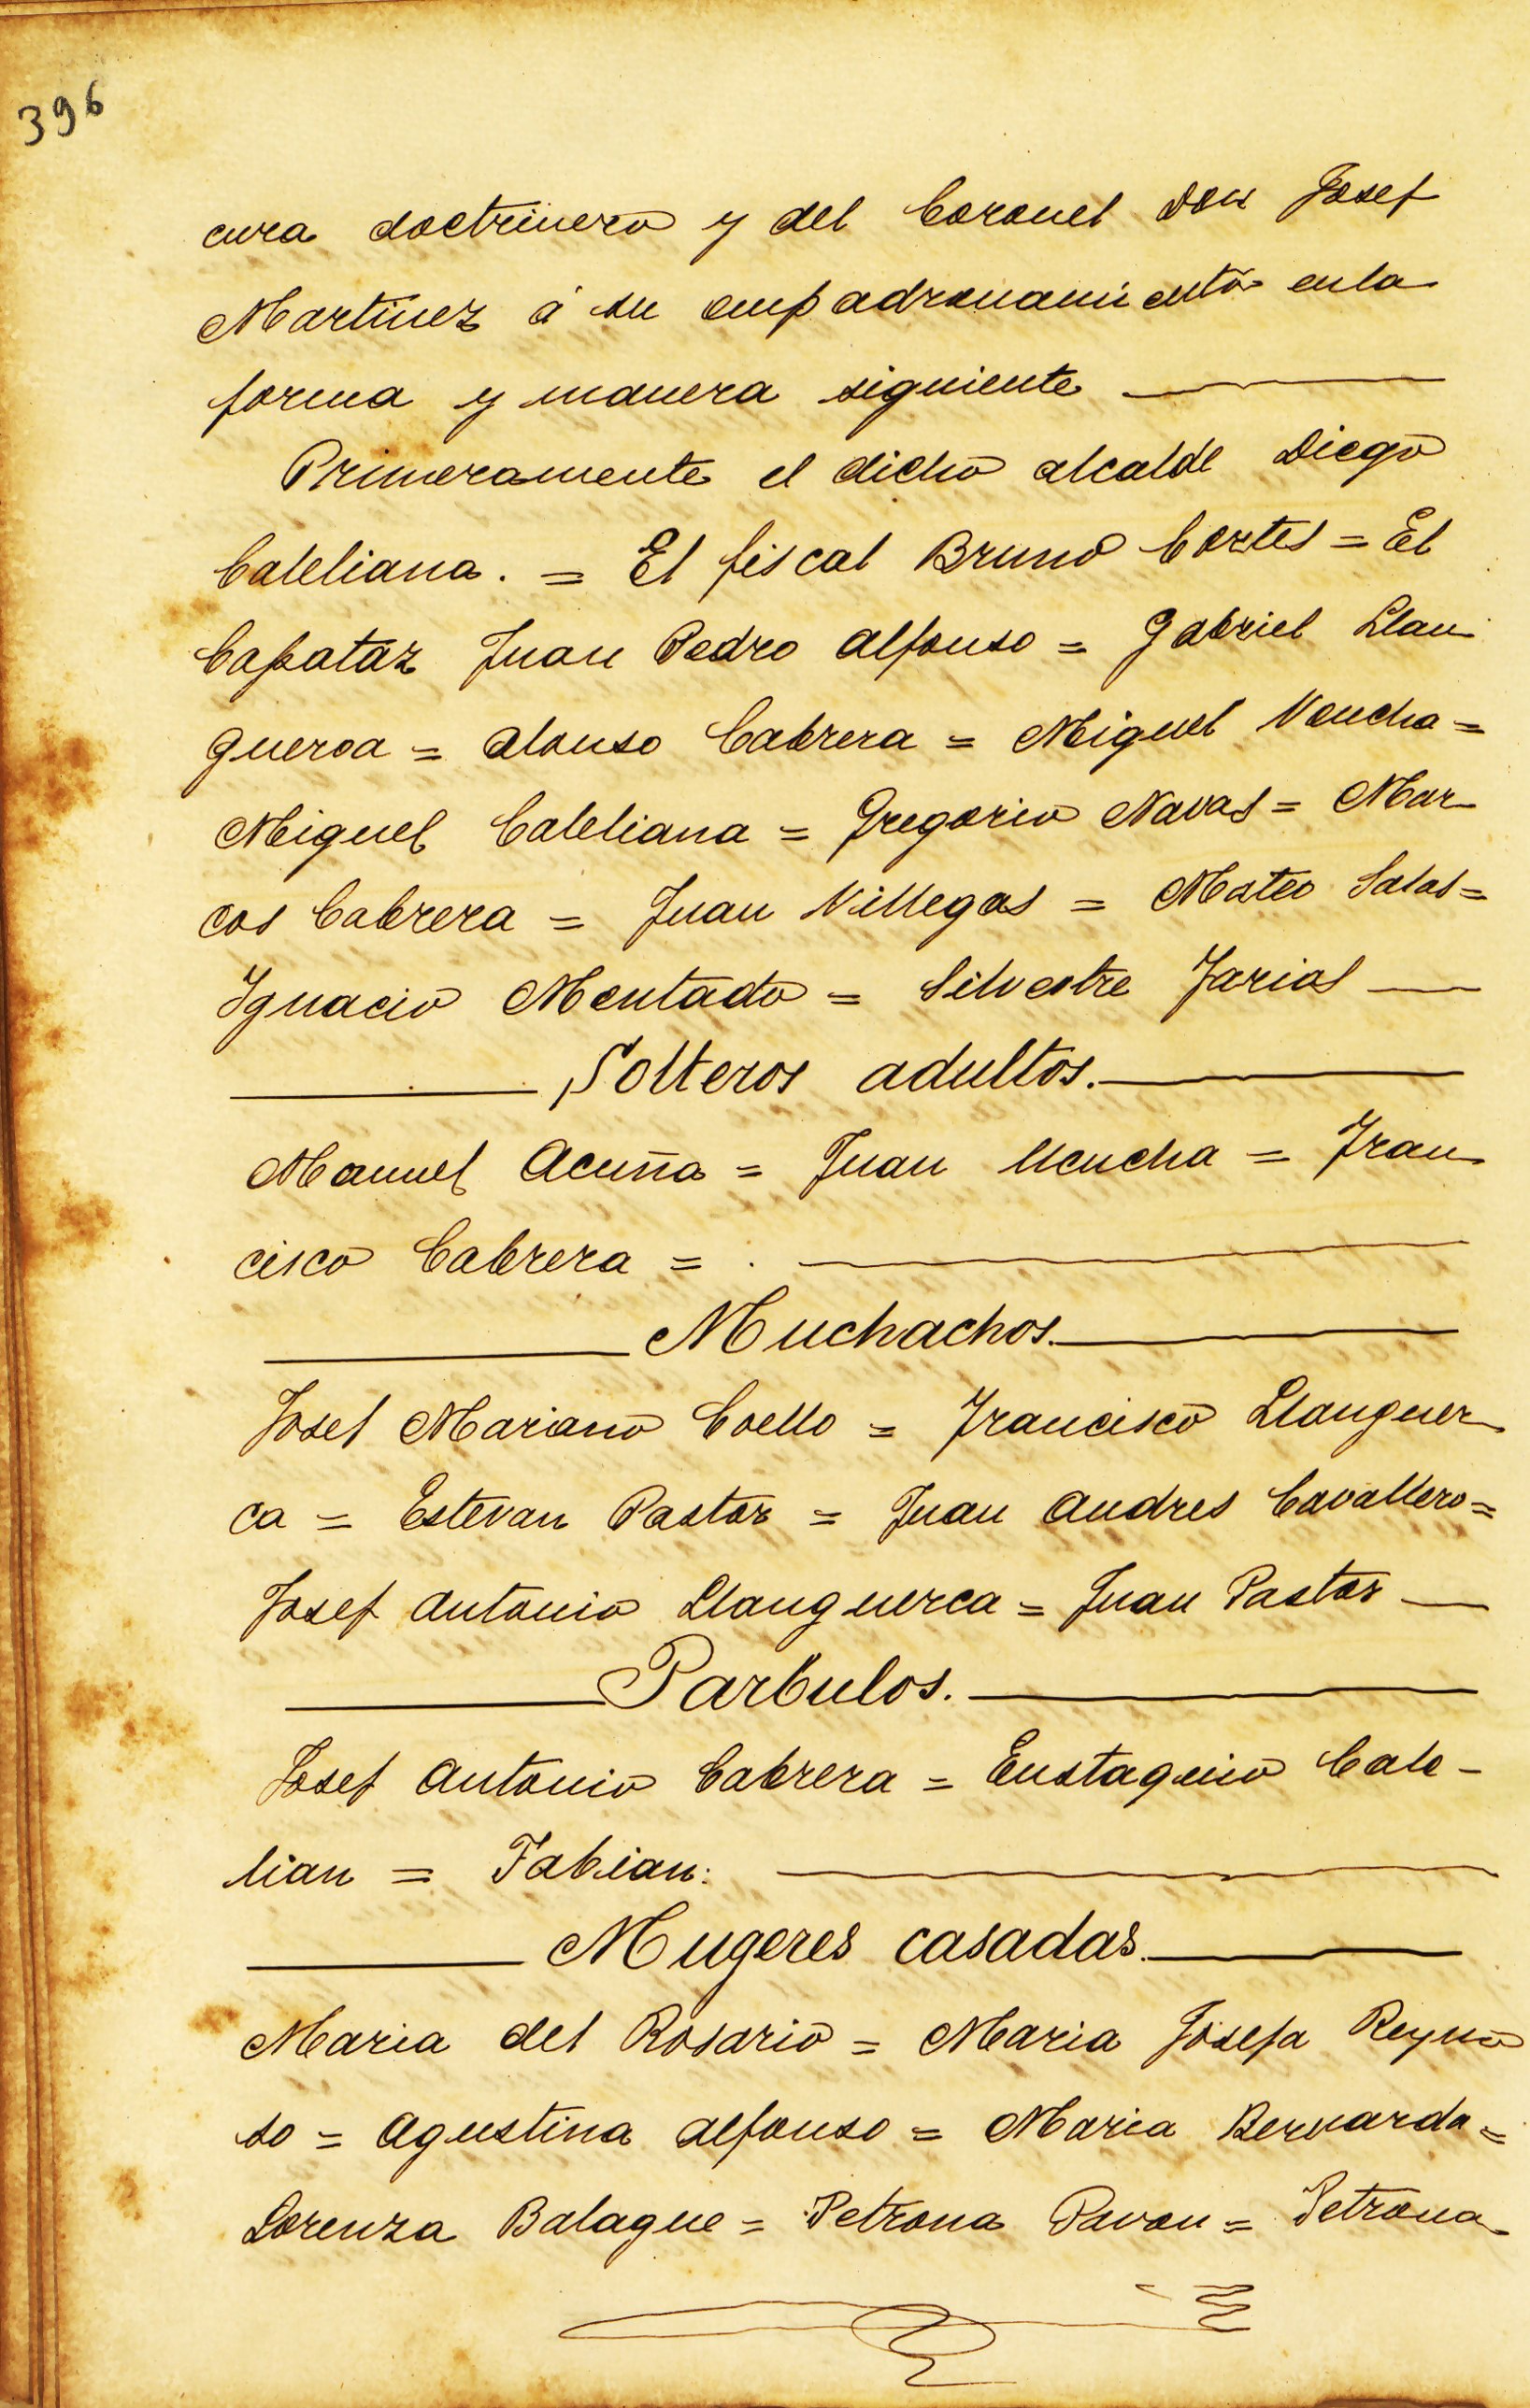 396
cura doctrinero y del Coronel Don Josef
Martinez á su empadronamiento en la
forma y manera siguiente
Primeramente el dicho alcalde Diego
Caleliana. = El fiscal Bruno Cortes = El
Capataz Juan Pedro Alfonso = Gabriel Llan
querca = Alonso Cabrera = Miguel Vencha =
Miguel Caleliana = Gregorio Navas = Mar
cos Cabrera = Juan Villegas = Mateo Salas =
Ignacio Mentado = Silvestre Farias
Solteros adultos.
Manuel Acuña = Juan Ucucha = Fran
cisco Cabrera =
Muchachos.
Josef Mariano Coello = Francisco Llanguer
ca = Estevan Pastor = Juan Andres Cavallero =
Josef Antonio Llanguerca = Juan Pastor
Parbulos.
Josef Antonio Cabrera = Eustaquio Cale -
lian = Fabian:
Mugeres casadas.
Maria del Rosario = Maria Josefa Reyno
so = Agustina Alfonso = Maria Bernarda =
Lorenza Balague = Petrona Pavon = Petrona